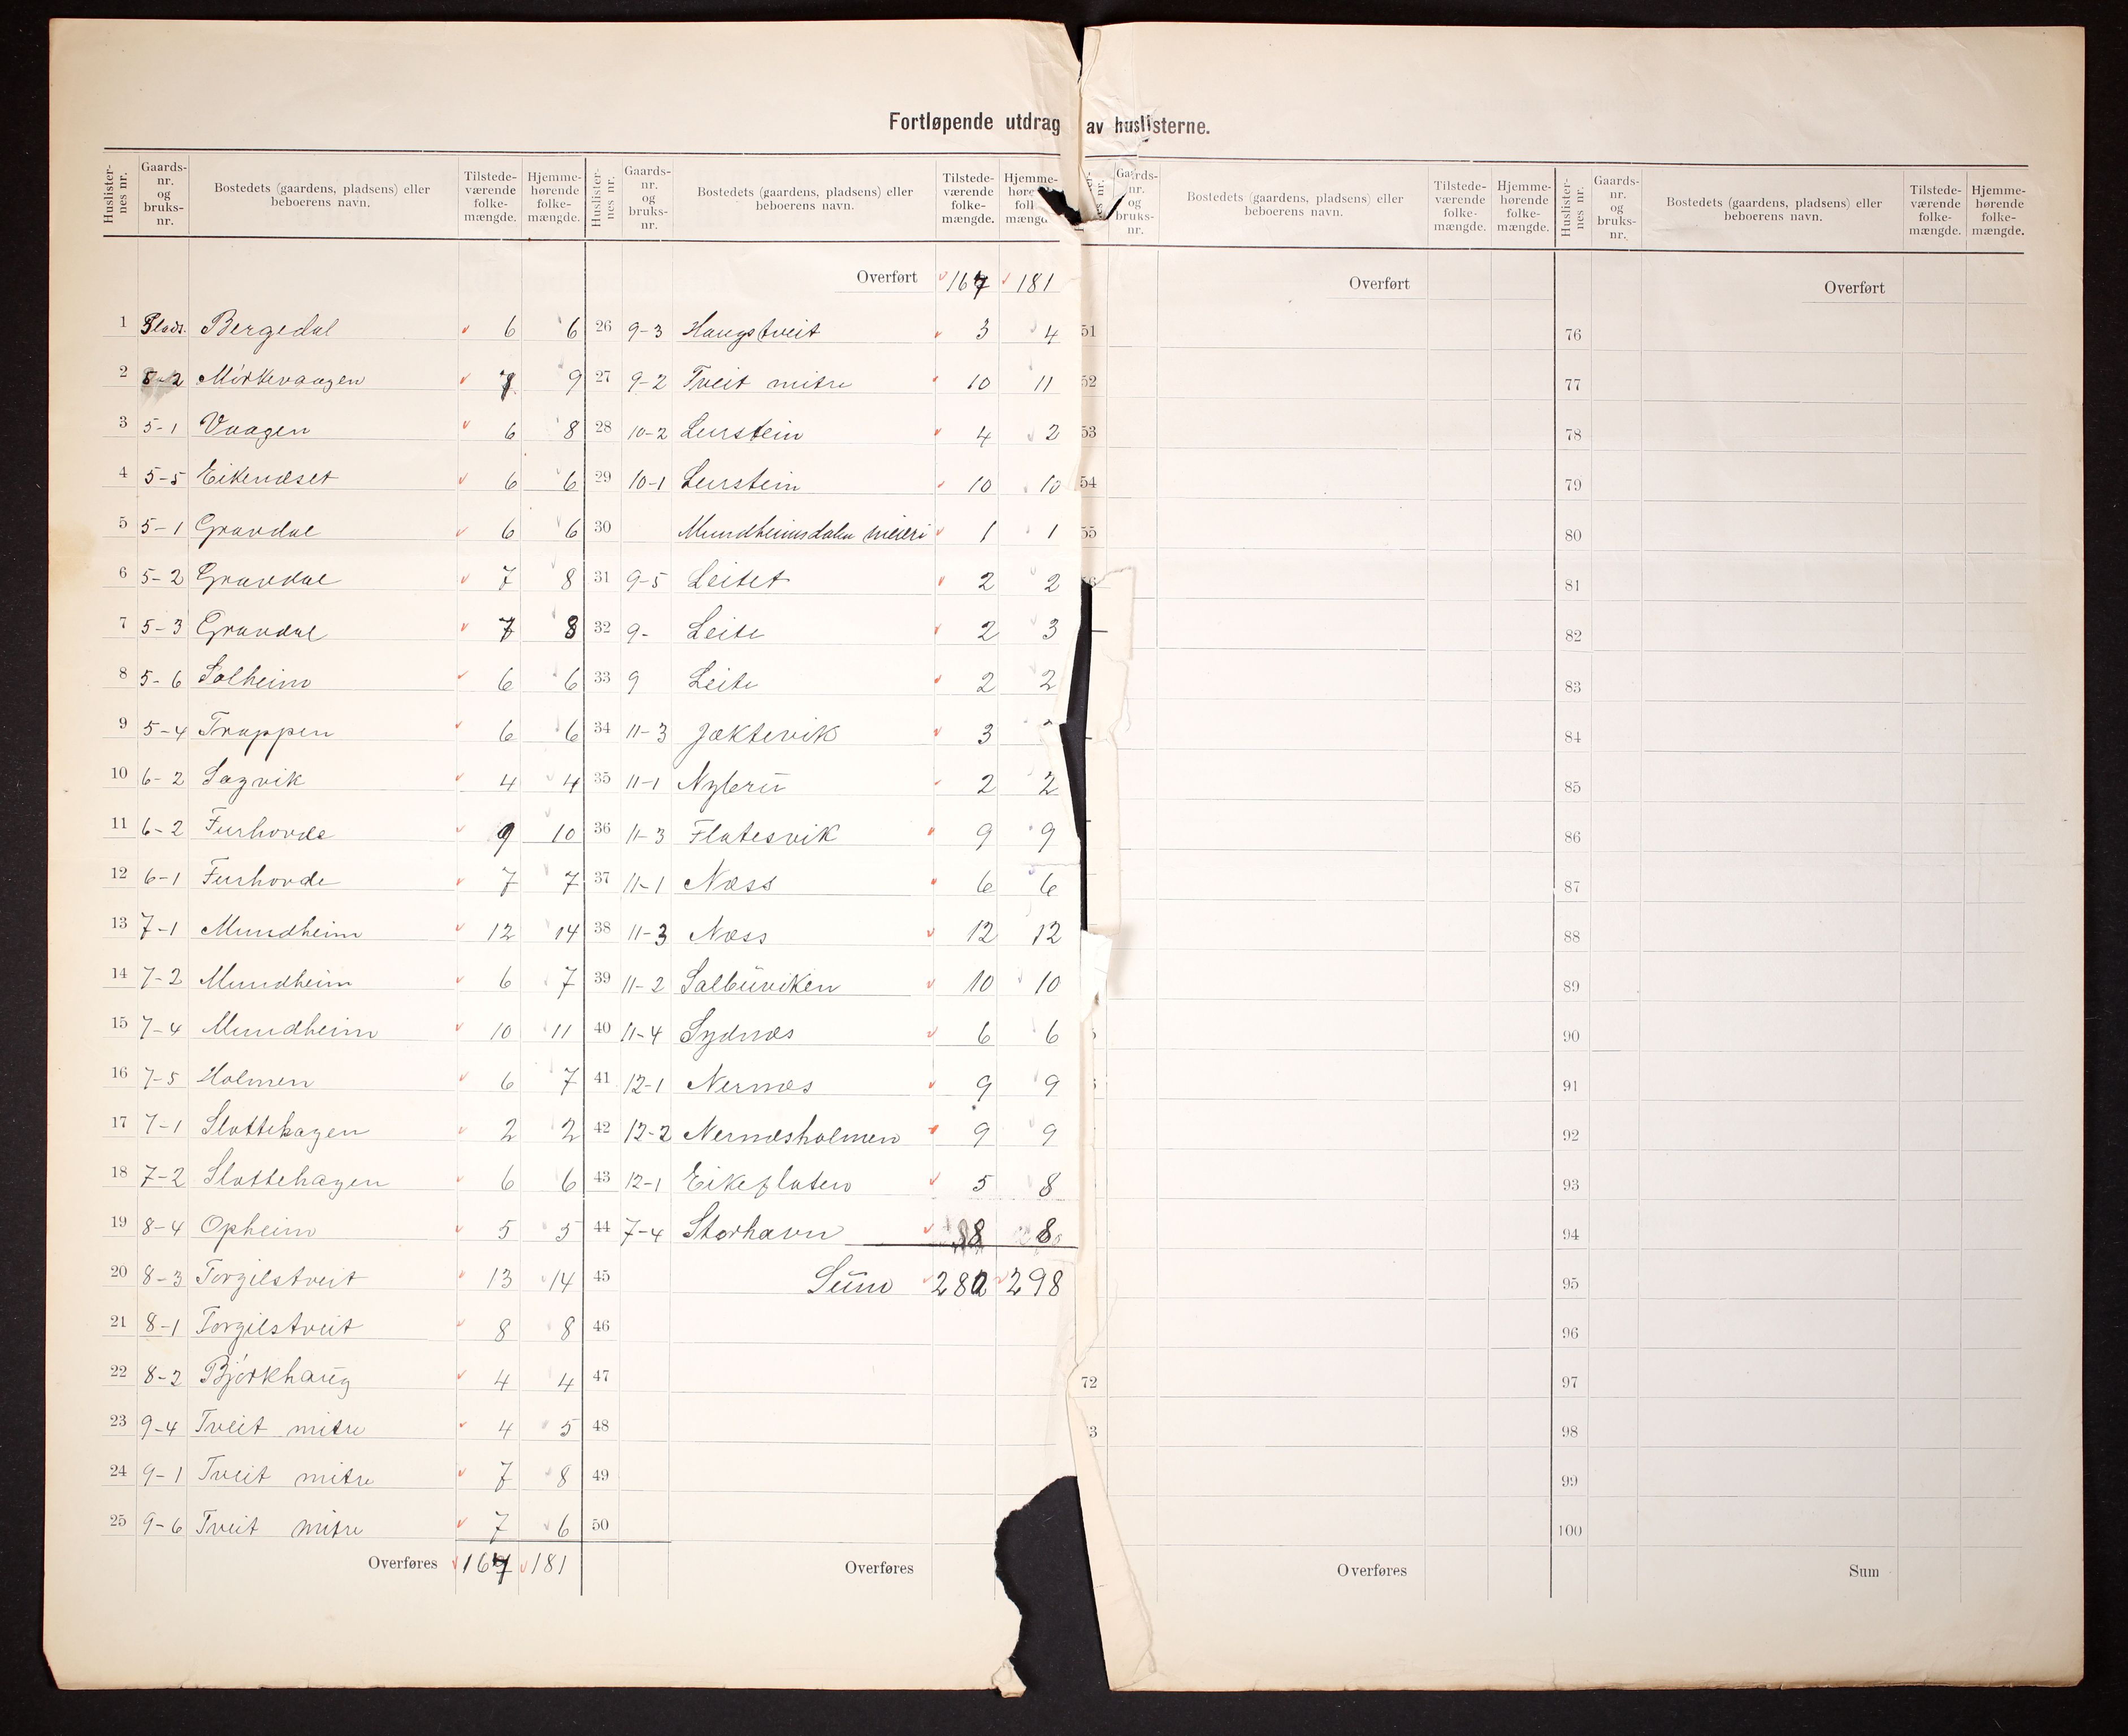 Fortløpende utdrag av huslisterne.
Huslister-nes nr. Gaards-nr. og bruks-nr. Bostedets (gaardens, pladsens) eller beboerens navn. Tilstede-værende folke-mængde. Hjemme-hørende folke-mængde.
1 Plads. Bergedal 6 6
2 8-2 Mörkevaagen 7 9
3 5-1 Vaagen 6 8
4 5-5 Eikenæset 6 6
5 5-1 Gravdal 6 6
6 5-2 Gravdal 7 8
7 5-3 Gravdal 7 8
8 5-6 Solheim 6 6
9 5-4 Trappen 6 6
10 6-2 Sagvik 4 4
11 6-2 Furhovde 9 10
12 6-1 Furhovde 7 7
13 7-1 Mundheim 12 14
14 7-2 Mundheim 6 7
15 7-4 Mundheim 10 11
16 7-5 Holmen 6 7
17 7-1 Slottehagen 2 2
18 7-2 Slottehagen 6 6
19 8-4 Opheim 5 5
20 8-3 Torgilstveit 13 14
21 8-1 Torgilstveit 8 8
22 8-2 Björkhaug 4 4
23 9-4 Tveit mitre 4 5
24 9-1 Tveit mitre 7 8
25 9-6 Tveit mitre 7 6
Overføres 167 181
Huslister-nes nr. Gaards-nr. og bruks-nr. Bostedets (gaardens, pladsens) eller beboerens navn. Tilstede-værende folke-mængde. Hjemme-
Overført 167 181
26 9-3 Haugstveit 3 4
27 9-2 Tveit mitre 10 11
28 10-2 Lurstein 4 2
29 10-1 Lurstein 10 10
30 Mundheimsdalen meieri 1 1
31 9-5 Leitet 2 2
32 9- Leite 2 3
33 9 Leite 2 2
34 11-3 Jæktevik 3
35 11-1 Nybrü 2 2
36 11-3 Flatesvik 9 9
37 11-1 Næss 6 6
38 11-3 Næss 12 12
39 11-2 Salbüviken 10 10
40 11-4 Sydnæs 6 6
41 12-1 Nernæs 9 9
42 12-2 Nernæsholmen 9 9
43 12-1 Eikeflaten 5 8
44 7-4 Storhavn 8 8
45 Süm 282 298
46
47
48
49
50
Overføres
Gaards-nr. og bruks-nr. Bostedets (gaardens, pladsens) eller beboerens navn. Tilstede-værende folke-mængde. Hjemme-hørende folke-mængde.
Overført
51
52
53
54
55
72
Overføres
Huslister-nes nr. Gaards-nr. og bruks-nr. Bostedets (gaardens, pladsens) eller beboerens navn. Tilstede-værende folke-mængde. Hjemme-hørende folke-mængde.
Overført
76
77
78
79
80
81
82
83
84
85
86
87
88
89
90
91
92
93
94
95
96
97
98
99
100
Sum